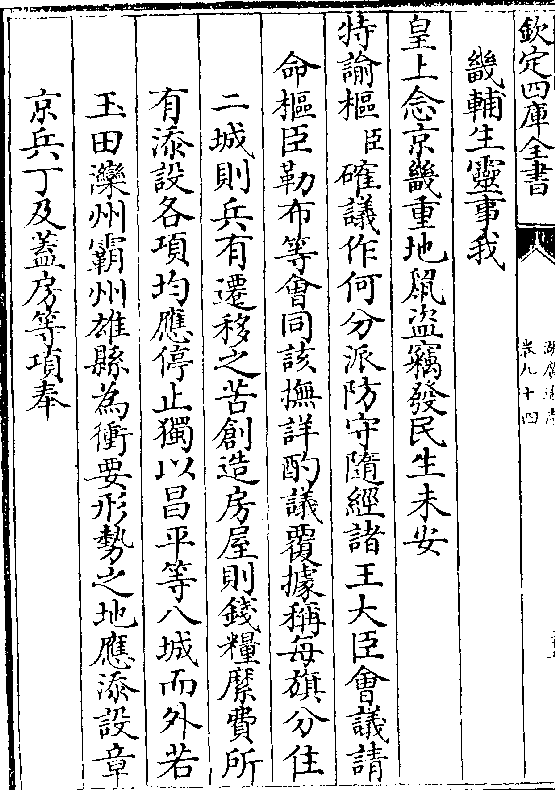 欽定四庫全書
卷九十四
畿輔生靈事我
皇上念京畿重地鼠盜竊發民生未安
特諭樞臣確議作何分派防守隨經諸王大臣會議請
命樞臣勒布等會同該撫詳酌議覆據稱每旗分住
二城則兵有遷移之苦創造房屋則錢糧縻費所
有添設各項均應停止獨以昌平等八城而外若
玉田灤州霸州雄縣為衝要形勢之地應添設章
京兵丁及蓋房等項奉